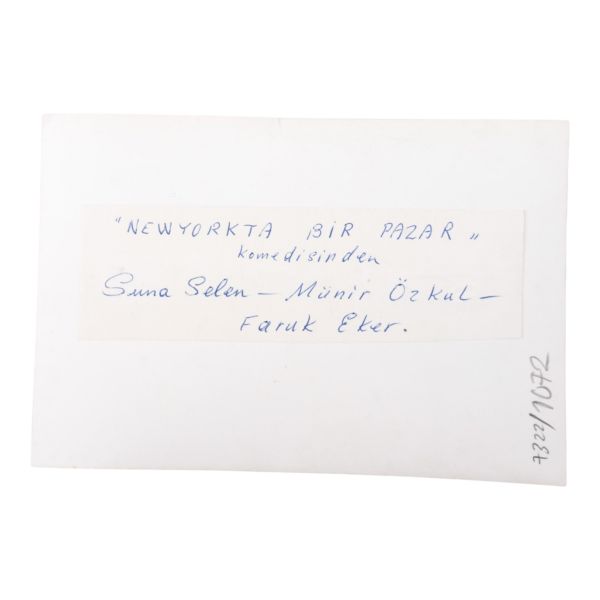 "NEWYORKTA BİR PAZAR„
komedisinden
Suna Selen — Münir Özkul —
Faruk Eker.